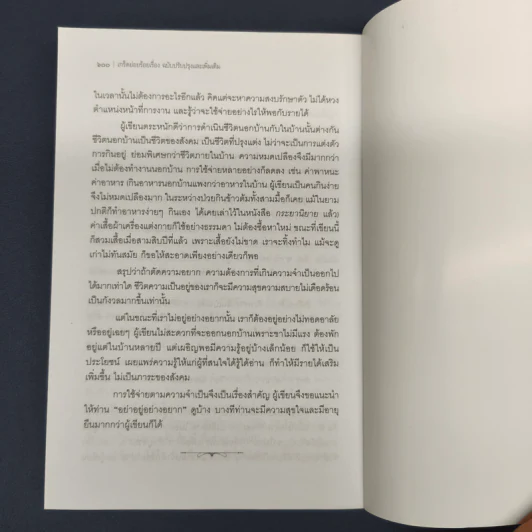 ๒๐๐ | เกร็ดสองร้อยเรื่อง ฉบับปรับปรุงและเพิ่มเติม
ในเวลานั้นไม่ต้องการอะไรอีกแล้ว คิดแต่จะหาความสงบรักษาตัว ไม่ได้หวง
ตำแหน่งหน้าที่การงาน และรู้ว่าจะใช้จ่ายอย่างไรให้พอกับรายได้
ผู้เขียนตระหนักดีว่าการดำเนินชีวิตนอกบ้านกับในบ้านนั้นต่างกัน
ชีวิตนอกบ้านเป็นชีวิตของสังคม เป็นชีวิตที่ปรุงแต่ง ไม่ว่าจะเป็นการแต่งตัว
การกินอยู่ ย่อมพิเศษกว่าชีวิตภายในบ้าน ความหมดเปลืองจึงมีมากกว่า
เมื่อไม่ต้องทำงานนอกบ้าน การใช้จ่ายหลายอย่างก็ลดลง เช่น ค่าพาหนะ
ค่าอาหาร กินอาหารนอกบ้านแพงกว่าอาหารในบ้าน ผู้เขียนเป็นคนกินง่าย
จึงไม่หมดเปลืองมาก ในระหว่างป่วยกินข้าวต้มทั้งสามมื้อก็เคย แม้ในยาม
ปกติก็ทำอาหารง่ายๆ กินเอง ได้เคยเล่าไว้ในหนังสือ กระยานิยาย แล้ว
ค่าเสื้อผ้าเครื่องแต่งกายก็ใช้อย่างธรรมดา ไม่ต้องซื้อหาใหม่ ขณะที่เขียนนี้
ก็สวมเสื้อเมื่อสามสิบปีที่แล้ว เพราะเสื้อยังไม่ขาด เราจะทิ้งทำไม แม้จะดู
เก่าไม่ทันสมัย ก็ขอให้สะอาดเพียงอย่างเดียวก็พอ
สรุปว่าถ้าตัดความอยาก ความต้องการที่เกินความจำเป็นออกไป
ได้มากเท่าใด ชีวิตความเป็นอยู่ของเราก็จะมีความสุขความสบายไม่เดือดร้อน
เป็นกังวลมากขึ้นเท่านั้น
แต่ในขณะที่เราไม่อยู่อย่างอยากนั้น เราก็ต้องอยู่อย่างไม่ทอดอาลัย
หรืออยู่เฉยๆ ผู้เขียนไม่สะดวกที่จะออกนอกบ้านเพราะขาไม่มีแรง ต้องพัก
อยู่แต่ในบ้านหลายปี แต่เผอิญพอมีความรู้อยู่บ้างเล็กน้อย ก็ใช้ให้เป็น
ประโยชน์ เผยแพร่ความรู้ให้แก่ผู้ที่สนใจได้รู้ได้อ่าน ก็ทำให้มีรายได้เสริม
เพิ่มขึ้น ไม่เป็นภาระของสังคม
การใช้จ่ายตามความจำเป็นจึงเป็นเรื่องสำคัญ ผู้เขียนจึงขอแนะนำ
ให้ท่าน “อย่าอยู่อย่างอยาก” ดูบ้าง บางทีท่านจะมีความสุขใจและมีอายุ
ยืนมากกว่าผู้เขียนก็ได้